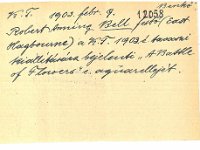 K. T. 1903. febr. 9. 12058
Robert Anning Bell festő (East
Hagbourne) a K.T. 1903. é. tavaszi
kiállítására bejelenti „A Battle
of Flowers" c. aquarelljét.